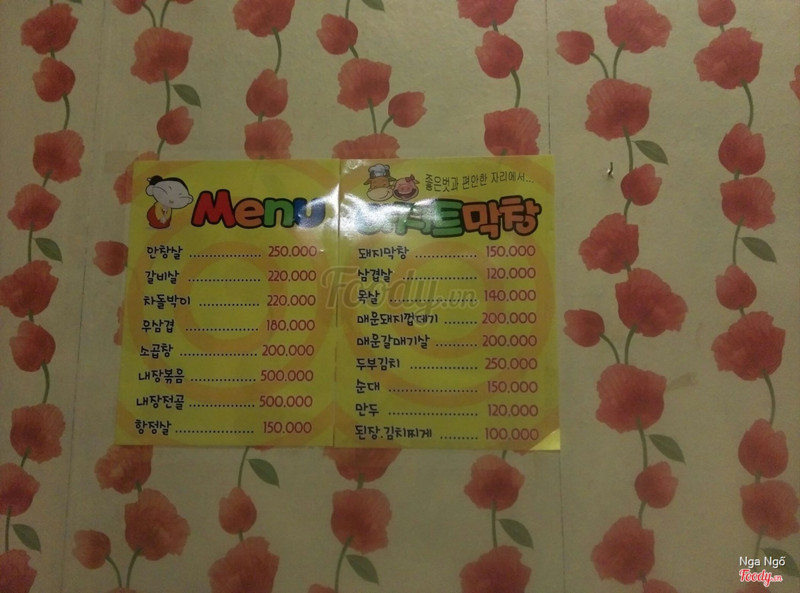 Menu
안창살 250,000
갈비살 220,000
차돌박이 220,000
우삼겹 180,000
소곱창 200,000
내장볶음 500,000
내장전골 500,000
항정살 150,000
좋은벗과 편안한 자리에서...
막창
돼지막창 150,000
삼겹살 120,000
목살 140,000
매운돼지껍데기 200,000
매운갈매기살 200,000
두부김치 250,000
순대 150,000
만두 120,000
된장.김치찌게 100,000
Foody.vn
Nga Ngố
Foody.vn